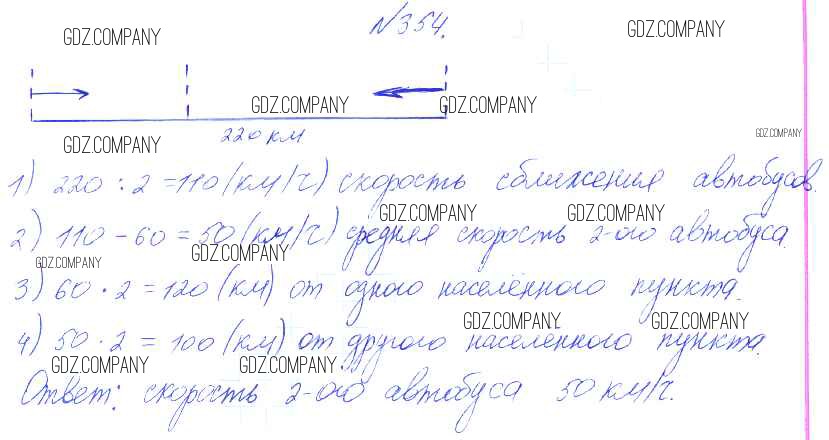 №354.
GDZ.COMPANY GDZ.COMPANY
GDZ.COMPANY GDZ.COMPANY
220 км
GDZ.COMPANY GDZ.COMPANY
1) 220 : 2 = 110 (км/ч) скорость сближения автобусов.
GDZ.COMPANY GDZ.COMPANY
2) 110 - 60 = 50 (км/ч) средняя скорость 2-ого автобуса.
GDZ.COMPANY GDZ.COMPANY
3) 60 · 2 = 120 (км) от одного населённого пункта.
GDZ.COMPANY GDZ.COMPANY
4) 50 · 2 = 100 (км) от другого населенного пункта.
GDZ.COMPANY GDZ.COMPANY
Ответ: скорость 2-ого автобуса 50 км/ч.